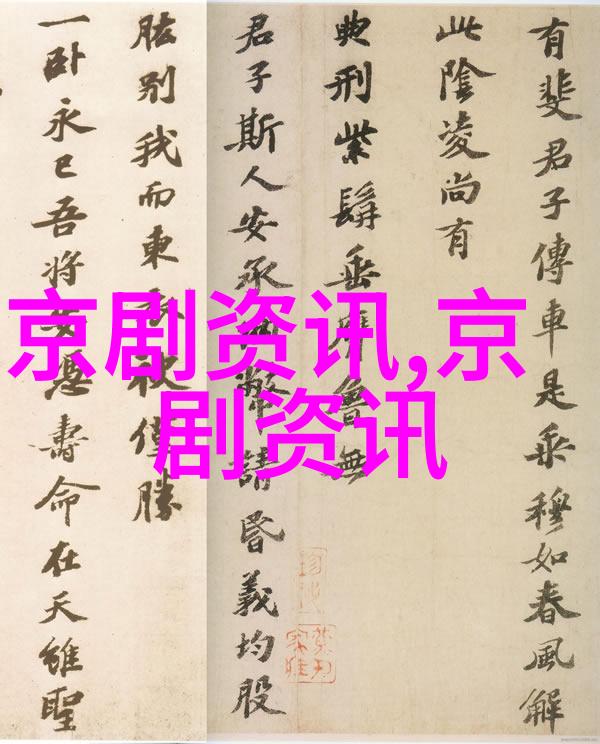 有斐君子傳車是乘穆如春風解
此陰凌尚有
典刑紫髯垂膺魯無
君子斯人安承幣請昏義均股
肱别我而東袂僅勝
一卧永已吾將安憑壽命在天雖聖
京剧资讯,京
剧资讯